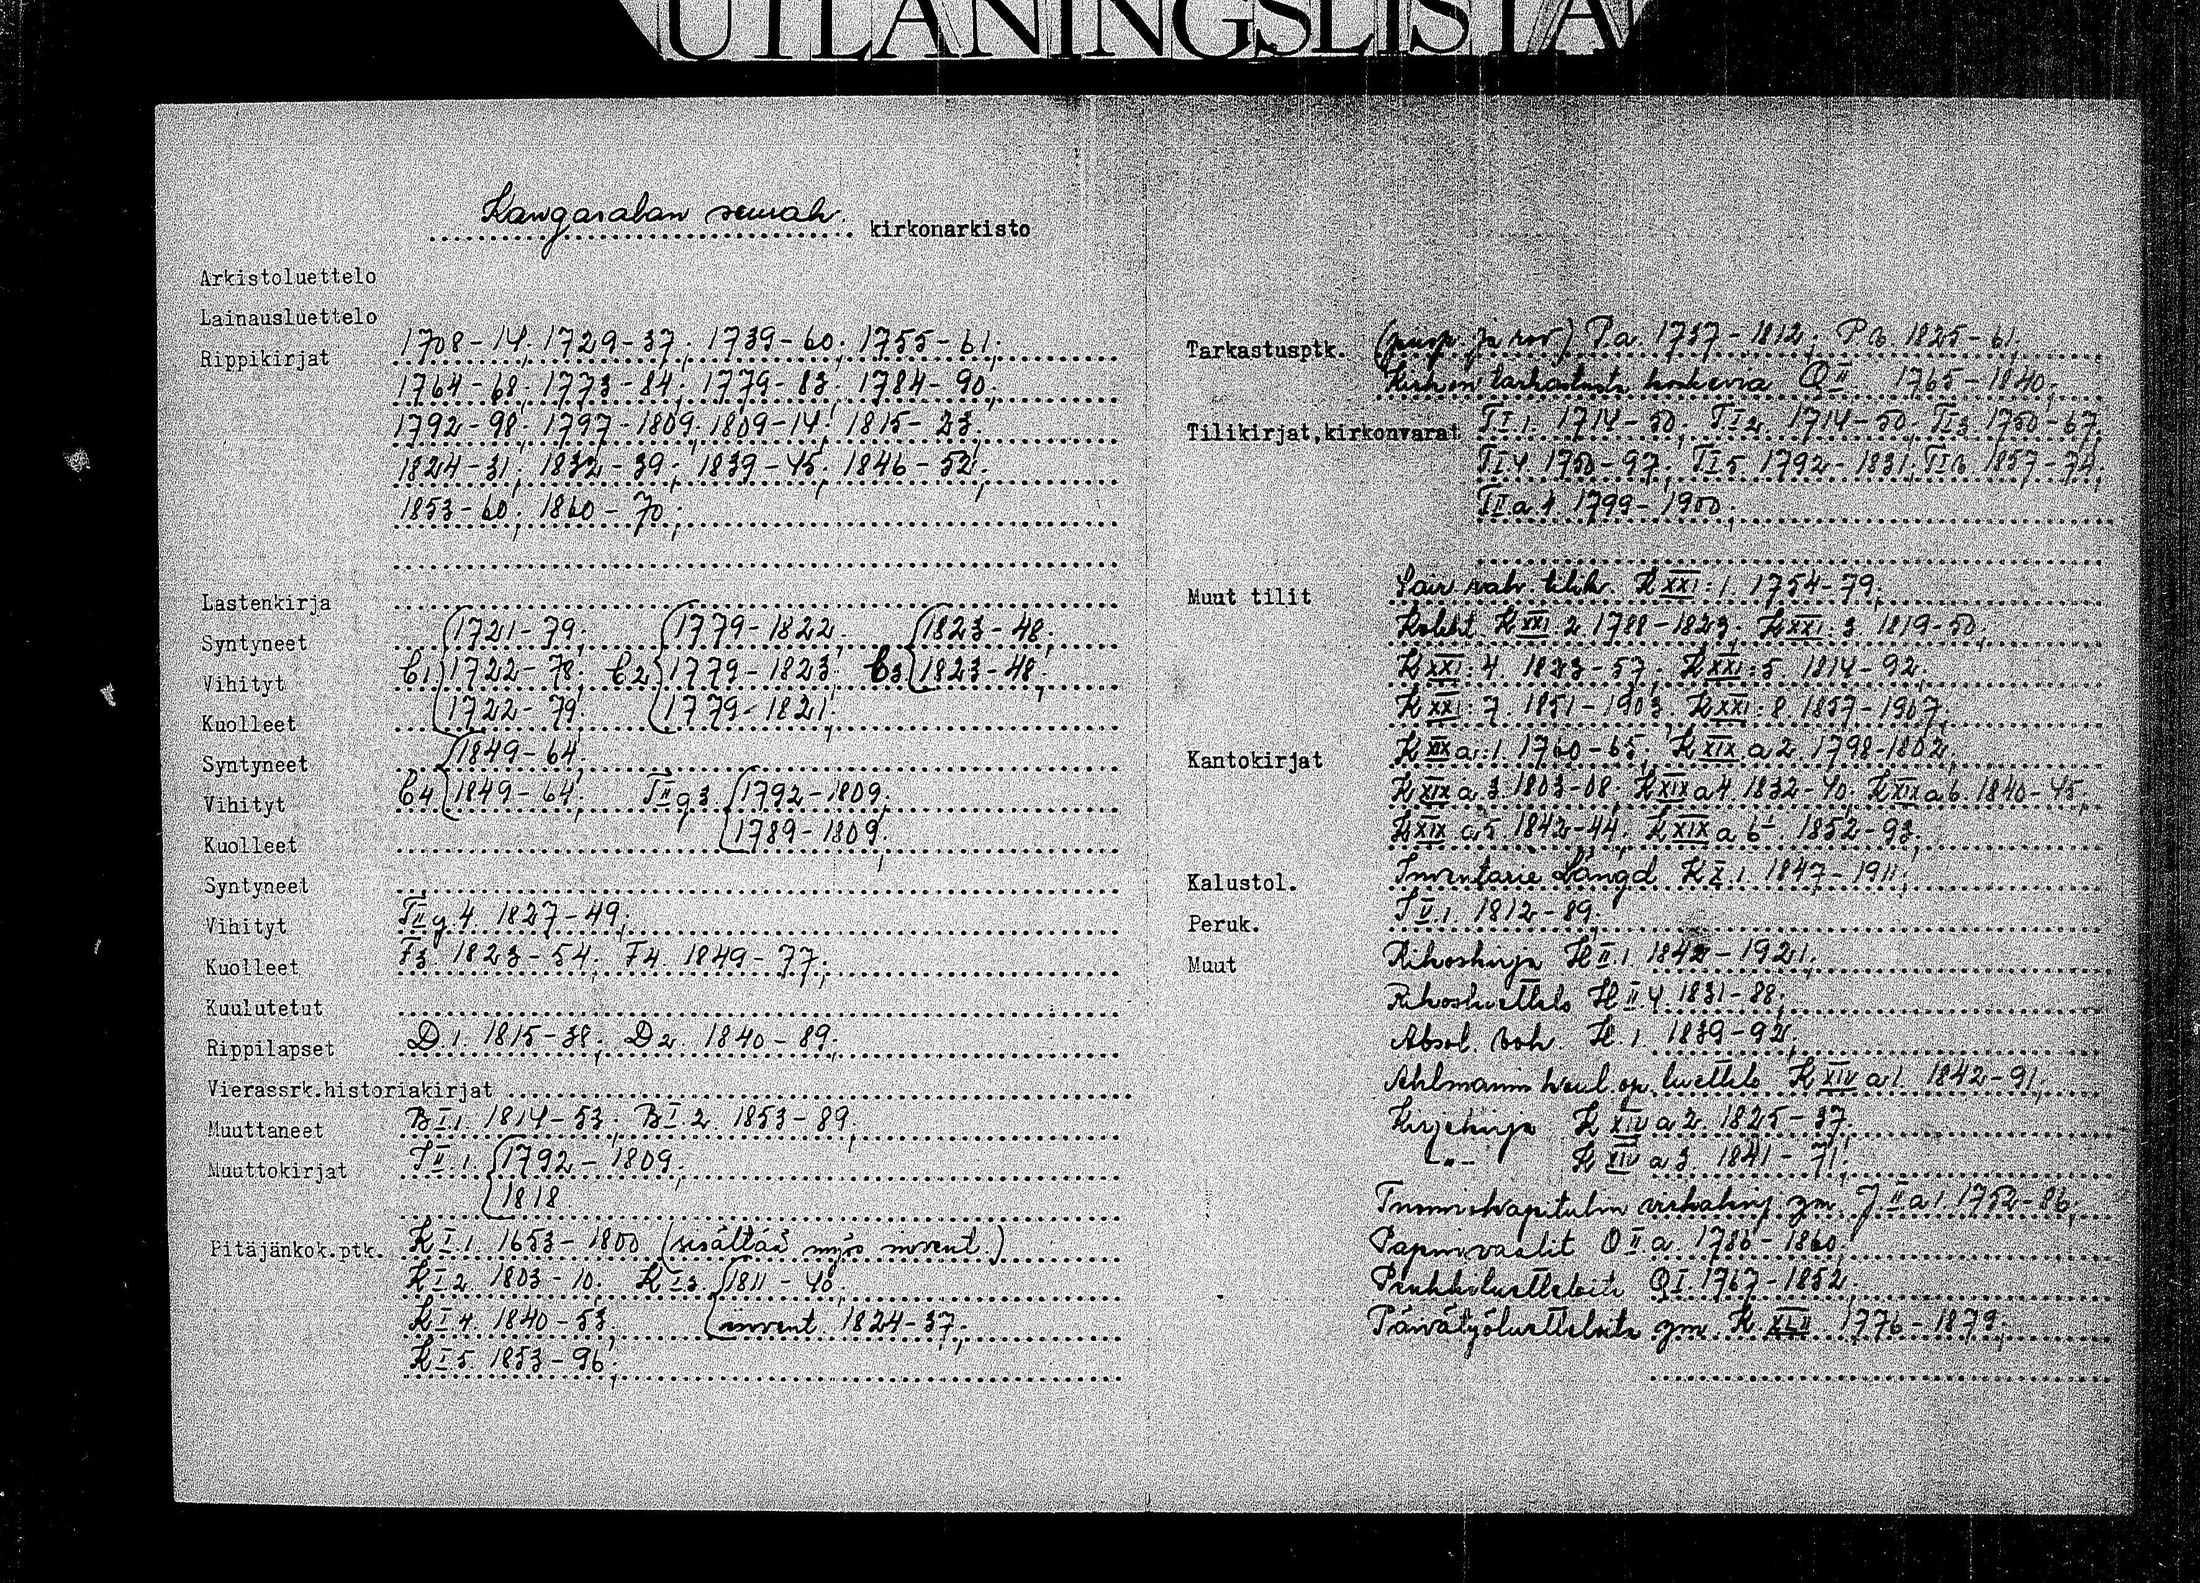 UTLÅNINGSLISTA
Kangasalan seurak. kirkonarkisto
Arkistoluettelo
Lainausluettelo
Rippikirjat 1708-14; 1729-37; 1739-60; 1755-61;
1764-68; 1773-84; 1779-83; 1784-90;
1792-98; 1797-1809; 1809-14; 1815-23;
1824-31; 1832-39; 1839-45; 1846-52;
1853-60; 1860-70;
Lastenkirja
Syntyneet 1721-79; 1779-1822; 1823-48;
Vihityt C1 1722-78; C2 1779-1823; C3 1823-48;
Kuolleet 1722-79; 1779-1821;
Syntyneet 1849-64;
Vihityt C4 1849-64; TIIg3 1792-1809;
Kuolleet 1789-1809;
Syntyneet
Vihityt TIIg4 1827-49;
Kuolleet F3 1823-54; F4. 1849-77;
Kuulutetut
Rippilapset D.1. 1815-38; D2. 1840-89;
Vierassrk.historiakirjat
Muuttaneet BI.1. 1814-53; BI.2. 1853-89;
Muuttokirjat II.1. 1792-1809;
1818
Pitäjänkok.ptk. KI.1. 1653-1800 (sisältää myös invent.)
KI2 1803-10; KI3 1811-40;
KI4. 1840-53; invent. 1824-37;
KI5. 1853-96;
Tarkastusptk. (piisp. ja rov.) Pa. 1737-1812; Pb 1825-61
Kirkon tarkastusta koskevia QII. 1765-1840;
Tilikirjat,kirkonvarat TI.1. 1714-50; TI2 1714-50; TI3 1750-67;
TI4. 1750-97; TI5. 1792-1831; TI6 1857-74;
TIIa1 1799-1900;
Muut tilit KXXI:1. 1754-79;
Kolekt. KXXI:2 1788-1823; KXXI:3 1819-50;
KXXI:4. 1823-57; KXXI:5. 1814-92;
KXXI:7. 1851-1903; KXXI:8 1857-1907;
Kantokirjat KXIXa:1. 1760-65; KXIXa2 1798-1802;
KXIXa3 1803-08; KXIXa4 1832-40; KXIXa6 1840-45;
KXIXa5 1842-44; KXIXa6 1852-93;
Kalustol. Inventarie Längd KX.1. 1847-1911;
Peruk. IV.1. 1812-89;
Muut Rikoskirja HII.1. 1842-1921;
Rikosluettelo HII.4. 1831-88;
Absol. H.1. 1839-92;
Ahlmannin koul. op. luettelo KXIVa1. 1842-91;
Kirjekirja KXIVa2 1825-37;
-"- KXIVa3. 1841-71;
Tuomiokapitulin virkakirj. ym. JIIa1. 1752-86;
Papinvaalit OIIa. 1786-1860;
Penkkiluetteloita QI. 1767-1852;
Päivätyöluetteloita ym. KXLII 1776-1879;